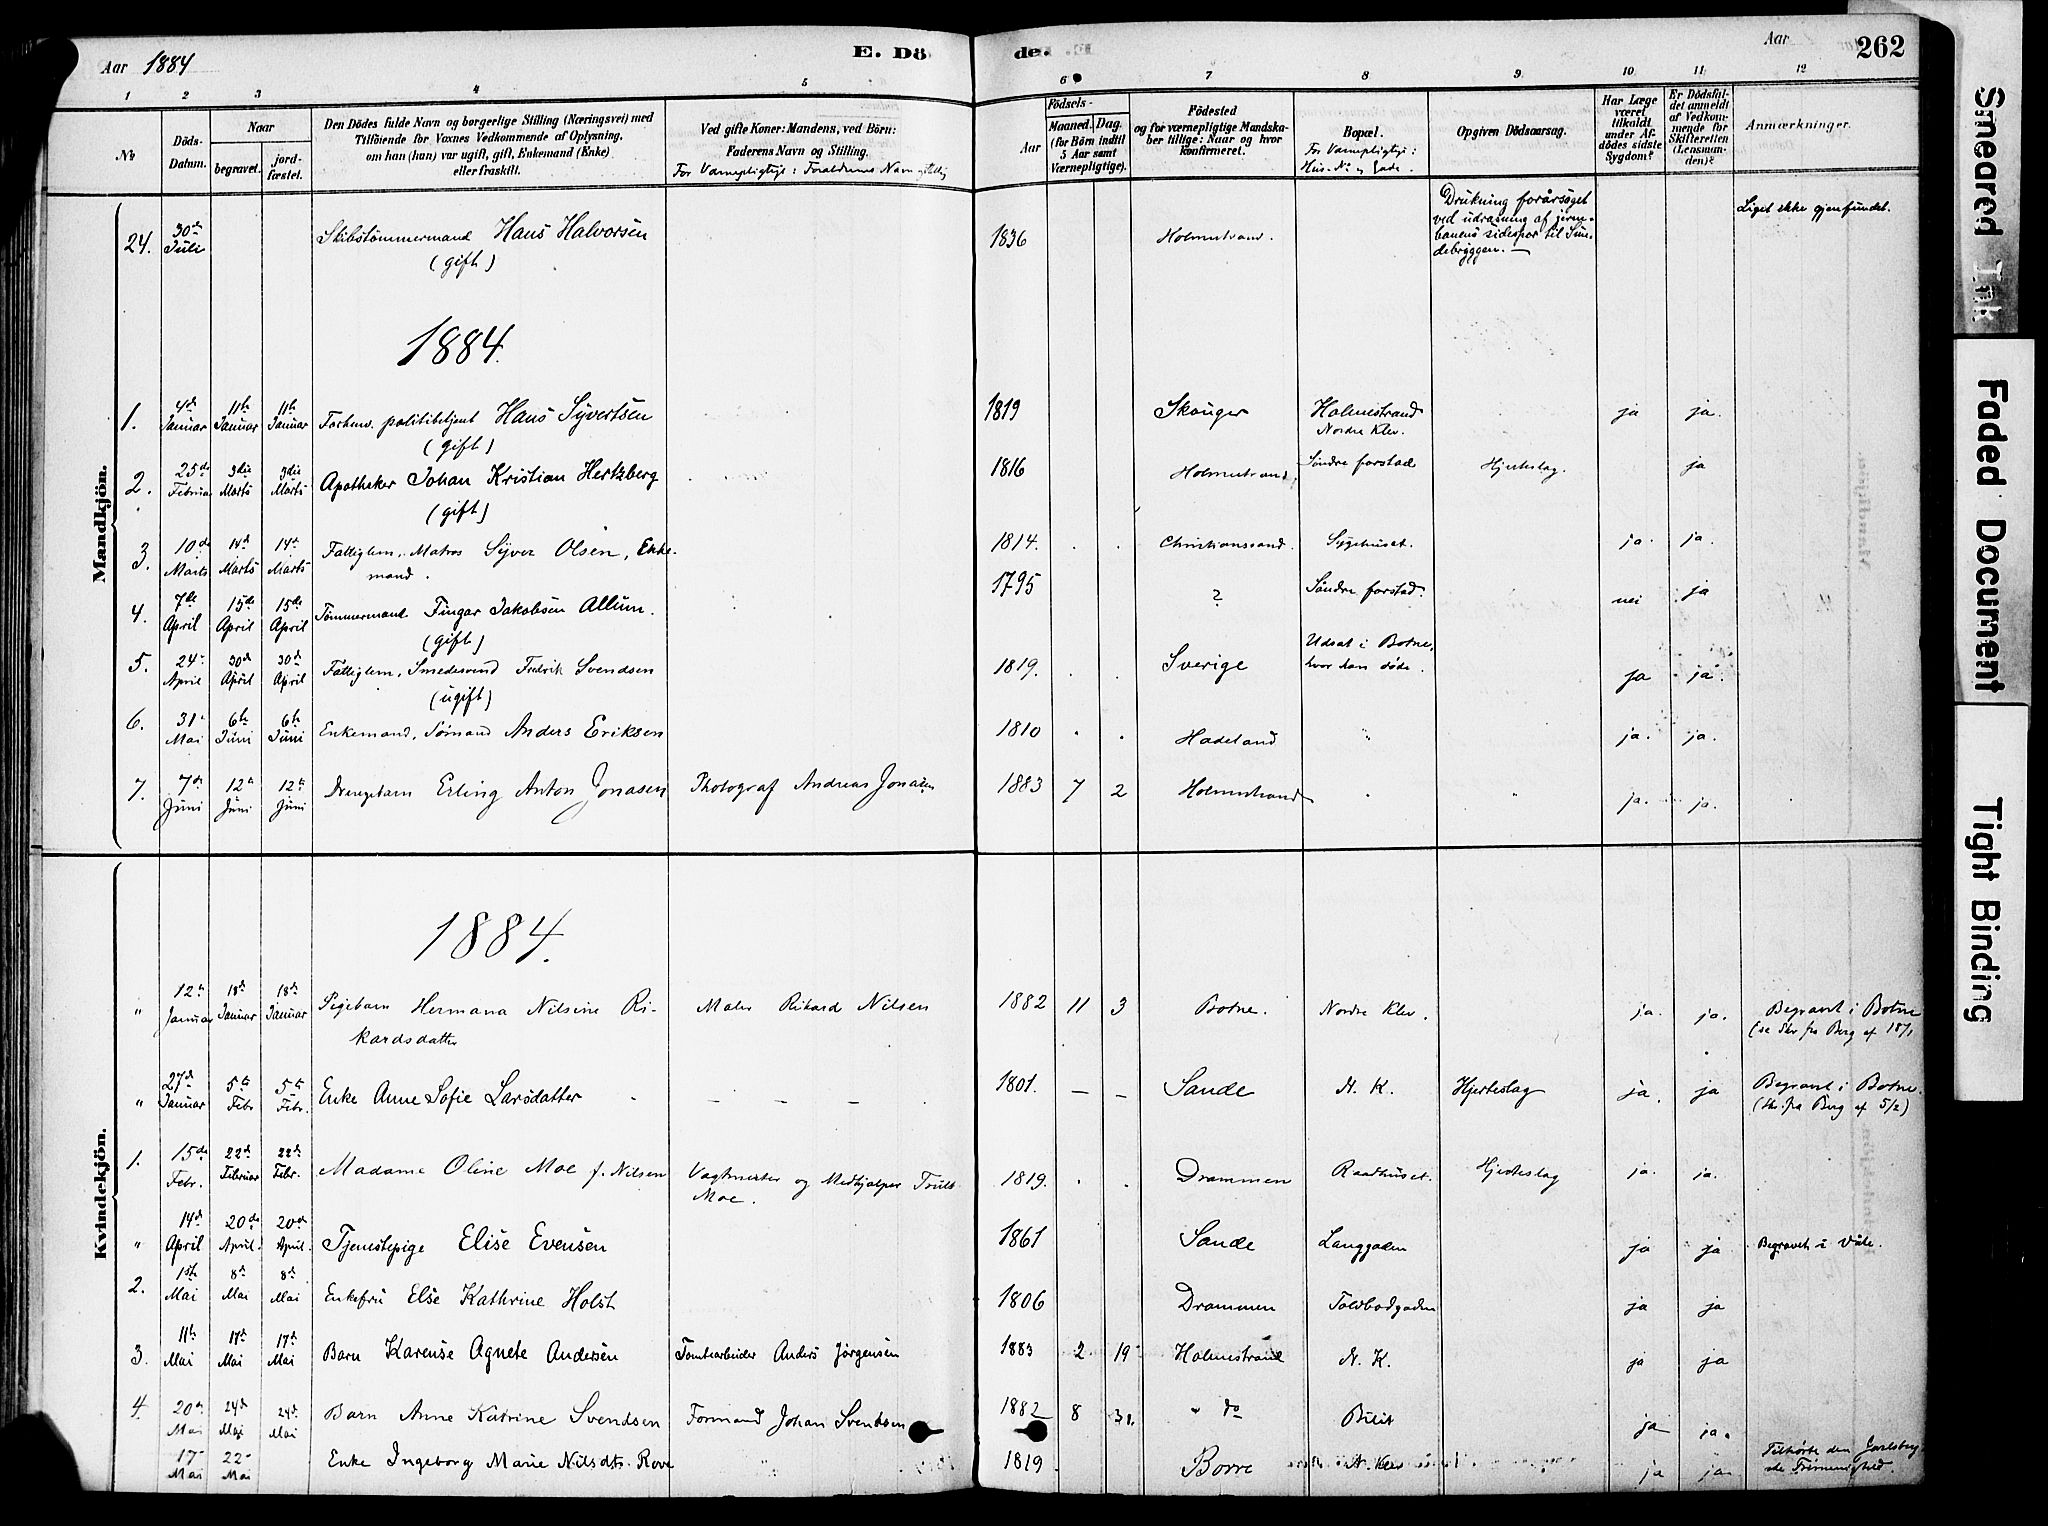 Aar 1884
E. Dö
de.
Aar
262
1 2 3 4 5 6 7 8 9. 10. 11. 12
No
Döds-
Datum.
Naar
begravet.
jord-
fæstet.
Den Dödes fulde Navn og borgerlige Stilling (Næringsvei) med
Tilföiende for Voxnes Vedkommende af Oplysning,
om han (hun) var ugift, gift, Enkemand (Enke)
eller fraskilt.
Ved gifte Koner: Mandens, ved Börn:
Faderens Navn og Stilling.
For Værnepligtige: Forældrenes Navn
Födsels-
Aar
Maaned. Dag.
(for Börn indtil
5 Aar samt
Værnepligtige).
Födested
og for værnepligtige Mandska-
ber tillige: Naar og hvor
konfirmeret.
Bopæl.
For Værnepligtige:
Hus-No og Gade.
Opgiven Dödsaarsag.
Har Læge
været
tilkaldt
under Af-
dödes sidste
Sygdom?
Er Dödsfal-
det anmeldt
af Vedkom-
mende for
Skifteretten
(Lensman-
den)?
Anmærkninger.
Mandkjön.
24. 30te Juli Skibstömmermand Hans Halvorsen
(gift)
1836 Holmestrand.
Drukning forårsaget
ved udrasning af jern-
banens sidespor til Sun-
debryggen. —
Liget ikke gjenfundet.
1884.
1. 4de Januar 11te Januar 11te Januar Forhenv. politibetjent Hans Syvertsen
(gift)
1819 Skouger Holmestrand
Nordre Klev. ja ja.
2. 25de Februar 3die Marts 3die Marts Apotheker Johan Kristian Hertzberg
(gift)
1816 Holmestrand Søndre forstad Hjerteslag. ja
3. 10de Marts 14de Marts 14de Marts Fattiglem, Matros Syver Olsen, Enke-
mand.
1814. Christianssand. Sygehuset. ja. ja.
4. 7de April 15de April 15de April Tømmermand Fingar Jakobsen Allum.
(gift)
1795 ? Søndre forstad. nei ja
5. 24de April 30de April 30de April Fattiglem, Smedesvend Fredrik Svendsen
(ugift)
1819. Sverige Udsat i Botne,
hvor han døde. ja ja.
6. 31te Mai 6te Juni 6te Juni Enkemand, Sømand Anders Eriksen
1810 Hadeland " ja. ja.
7. 7de Juni 12te Juni 12te Juni Drengebarn Erling Anton Jonasen Photograf Andreas Jonasen
1883 7 2 Holmestrand " " ja. ja.
Kvindekjön.
1884.
" 12te Januar 18de Januar 18de Januar Pigebarn Hermana Nilsine Ri-
kardsdatter
Maler Rikard Nilsen 1882 11 3 Botne. Nordre Klev. ja. ja. Begravet i Botne
(se Skr fra Berg af 18/1
" 27de Januar 5te Febr 5te Febr. Enke Anne Sofie Larsdatter — — —
1801. — — Sande N. K. Hjerteslag ja. ja Begravet i Botne.
(Skr. fra Berg af 5/2)
1. 15de Febr. 22de Februar 22de Febr. Madame Oline Moe f. Nilsen Vagtmester og Medhjælper Truls
Moe.
1819. Drammen Raadhuset. Hjerteslag ja. ja.
" 14de April 20de April. 20de April. Tjenstepige Elise Evensen
1861 Sande Langgaden ja ja Begravet i Våle.
2. 1ste Mai 8de Mai 8de Mai Enkefru Else Kathrine Holst
1806 Drammen Toldbodgaden ja ja
3. 11te Mai 17de Mai 17de Mai Barn Karense Agnete Andersen Tomtearbeider Anders Jørgensen
1883 2 19 Holmestrand N. K. ja ja
4. 20de Mai 24de Mai 24de Mai Barn Anne Katrine Svendsen Formand Johan Svendsen
1882 8 31. " do ja ja.
17 Mai 22 Mai Enke Ingeborg Marie Nilsdtr. Rove
1819 Borre N. Klev ja ja Tilhørte den Jarlsberg
ske Frimenighed.
Smeared Ink
Faded Document
Tight Binding